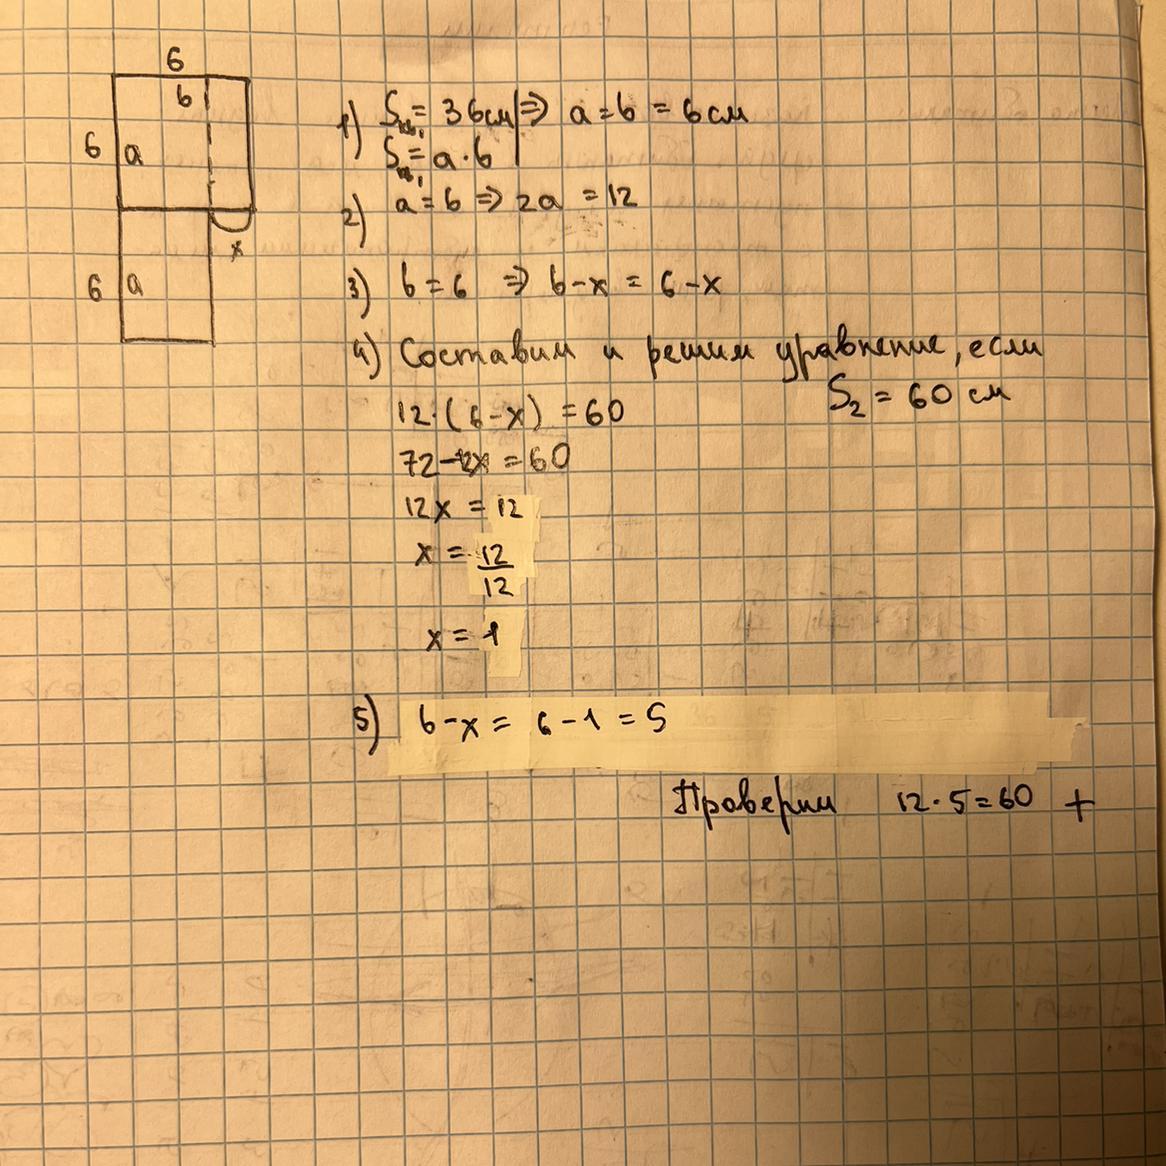 6
b
6 a
x
6 a
1) Sкв. = 36см ⇒ a = b = 6 см
Sкв. = a · b
2) a = b ⇒ 2a = 12
3) b = 6 ⇒ b - x = 6 - x
4) Составим и решим уравнение, если
S₂ = 60 см
12 · (6 - x) = 60
72 - 12x = 60
12x = 12
x = 12/12
x = 1
5) b - x = 6 - 1 = 5
Проверим 12 · 5 = 60 +